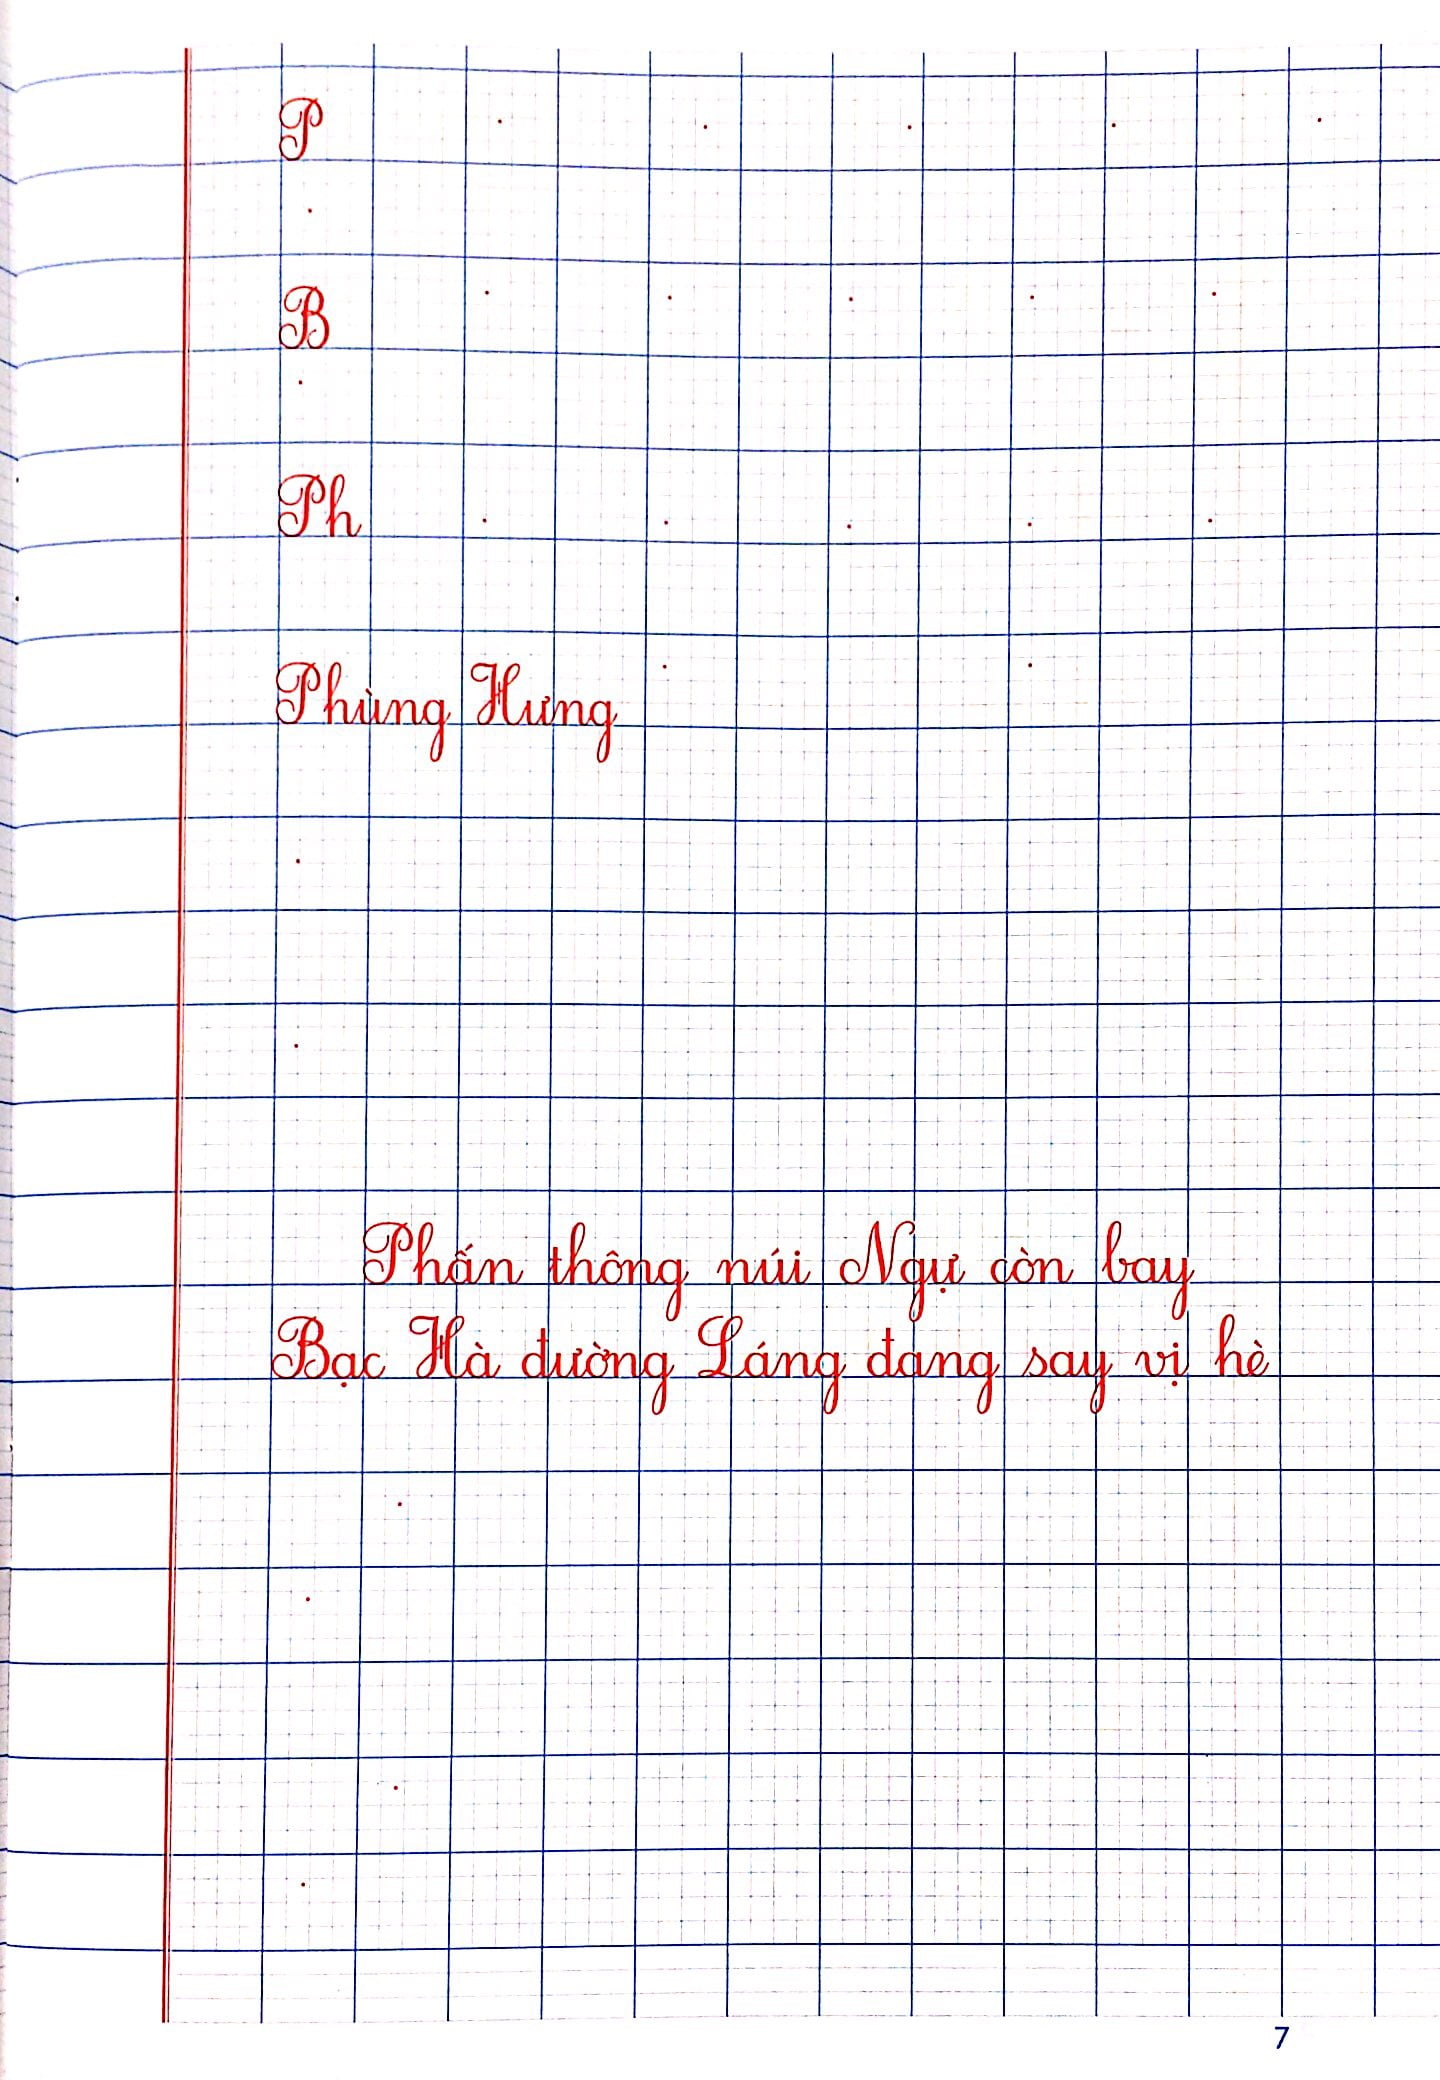 P
B
Ph
Phùng Hưng
Phấn thông núi Ngự còn bay
Bạc Hà đường Láng đang say vị hè
7